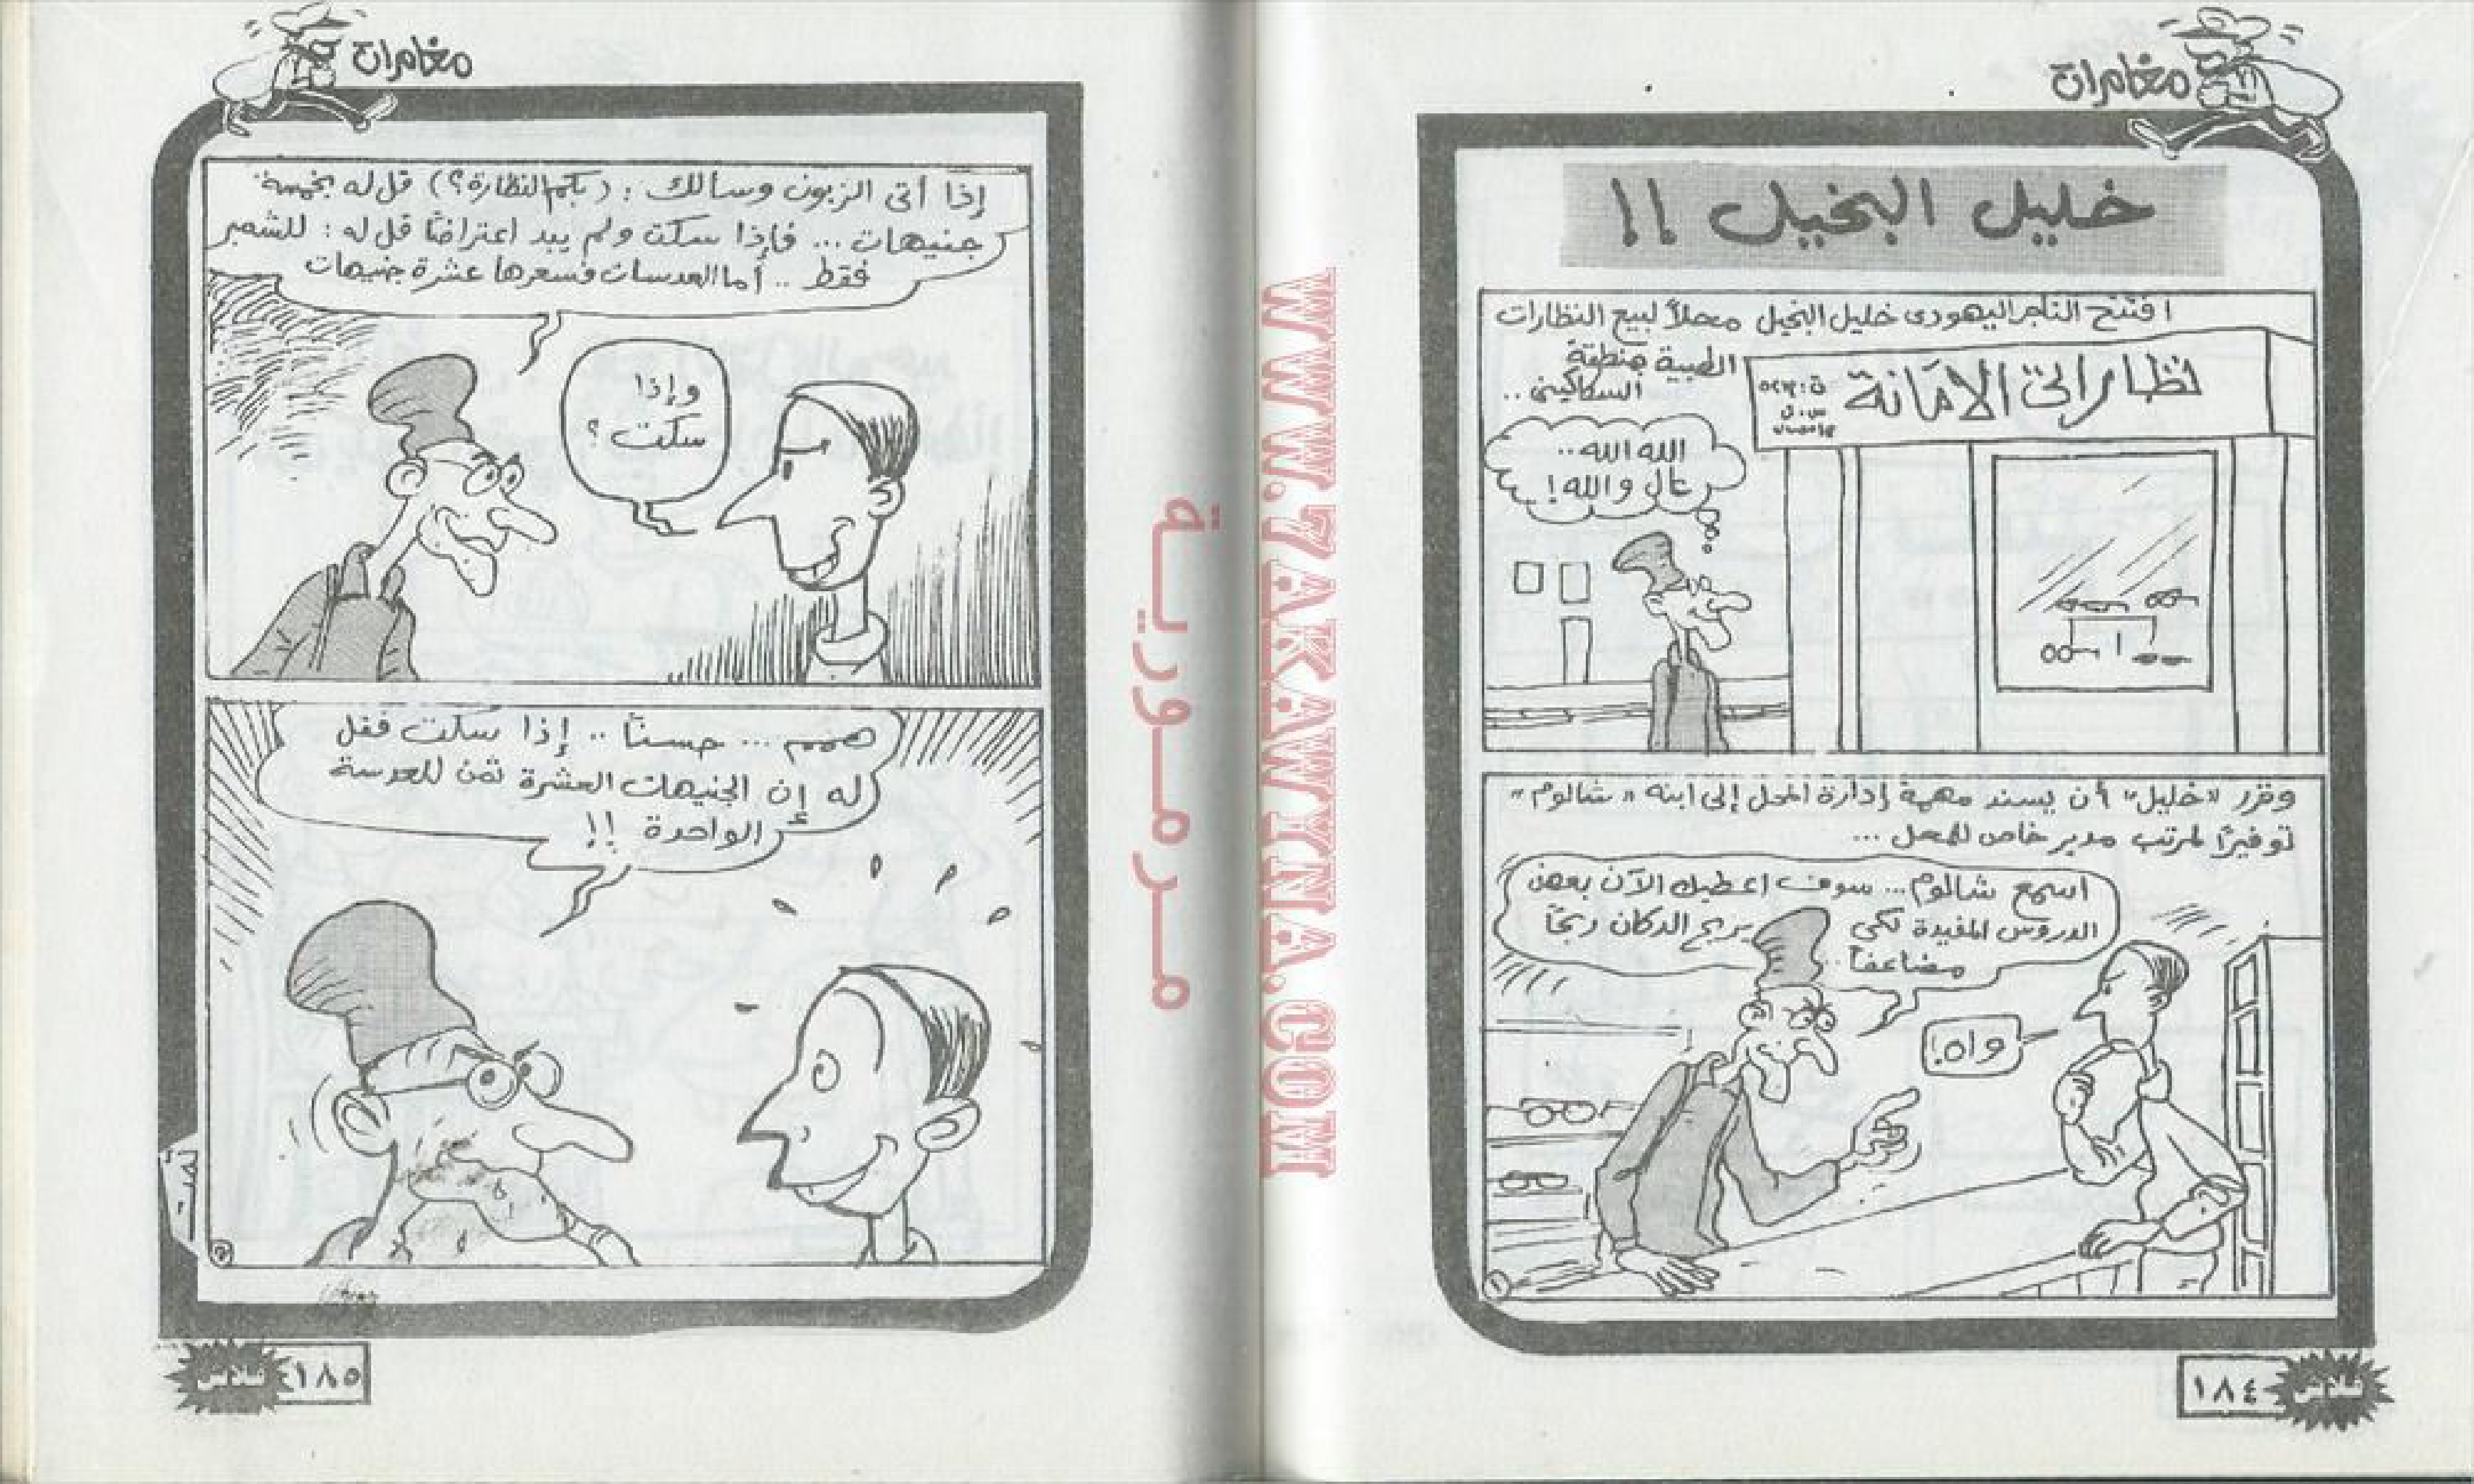 مغامرات
خليل البخيل !!
افتتح التاجر اليهودى خليل البخيل محلاً لبيع النظارات
الطبية بمنطقة
السكاكينى ..
نظارات الأمانة
س.ت
الله الله ..
عال والله !
وقرر «خليل» أن يسند مهمة إدارة المحل إلى ابنه «شالوم»
توفيرًا لمرتب مدير خاص للمحل ...
اسمع شالوم ... سوف اعطيك الآن بعض
الدروس المفيدة لكى يربح الدكان ربحًا
مضاعفاً ..
واه!
١٨٤
فلاش
مغامرات
إذا أتى الزبون وسألك : (بكم النظارة؟) قل له بخمسة
جنيهات ... فإذا سكت ولم يبد اعتراضًا قل له : للشمبر
فقط .. أما العدسات فسعرها عشرة جنيهات
وإذا
سكت ؟
هممم ... حسنًا .. إذا سكت فقل
له إن الجنيهات العشرة ثمن للعدسة
الواحدة !!
١٨٥
فلاش
مرمورية
WWW.7AKAWINA.COM